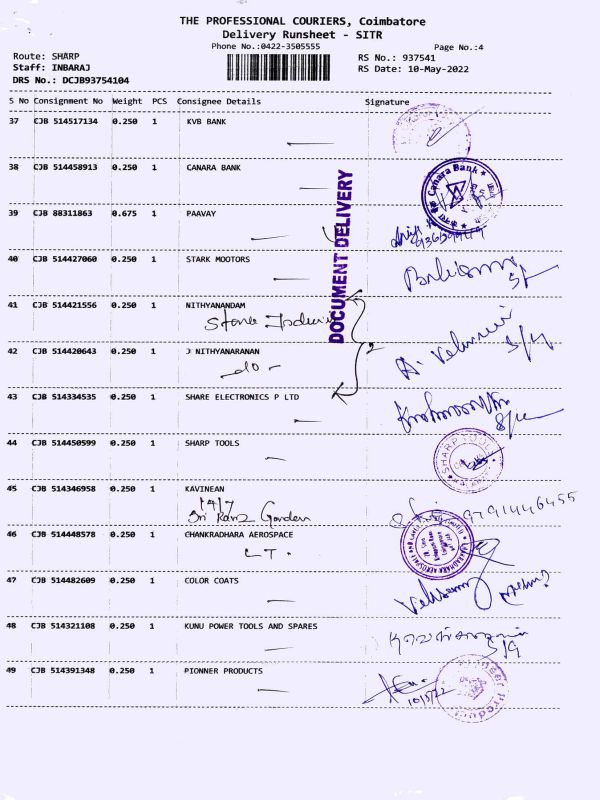 THE PROFESSIONAL COURIERS, Coimbatore
Delivery Runsheet - SITR
Phone No.:0422-3505555
Page No.:4
Route: SHARP
RS No.: 937541
Staff: INBARAJ
RS Date: 10-May-2022
DRS No.: DCJB93754104
S No Consignment No Weight PCS Consignee Details Signature
37 CJB 514517134 0.250 1 KVB BANK
38 CJB 514458913 0.250 1 CANARA BANK
Canara Bank
39 CJB 88311863 0.675 1 PAAVAY
DOCUMENT DELIVERY
40 CJB 514427060 0.250 1 STARK MOOTORS
41 CJB 514421556 0.250 1 NITHYANANDAM
42 CJB 514420643 0.250 1 J NITHYANARANAN
2
-do-
43 CJB 514334535 0.250 1 SHARE ELECTRONICS P LTD
44 CJB 514450599 0.250 1 SHARP TOOLS
SHARP TOOLS
45 CJB 514346958 0.250 1 KAVINEAN
Garden
9791446455
46 CJB 514448578 0.250 1 CHANKRADHARA AEROSPACE
L T.
47 CJB 514482609 0.250 1 COLOR COATS
48 CJB 514321108 0.250 1 KUNU POWER TOOLS AND SPARES
49 CJB 514391348 0.250 1 PIONNER PRODUCTS
10/5/22